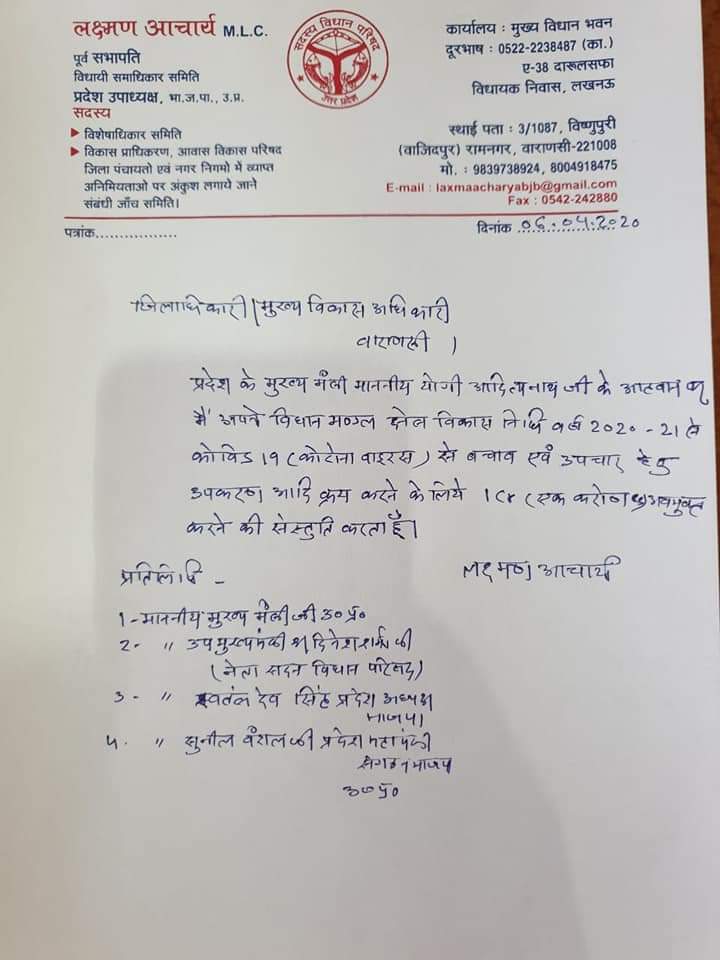 लक्ष्मण आचार्य M.L.C.
पूर्व सभापति
विधायी समाधिकार समिति
प्रदेश उपाध्यक्ष, भा.ज.पा., उ.प्र.
सदस्य
विशेषाधिकार समिति
विकास प्राधिकरण, आवास विकास परिषद
जिला पंचायतो एवं नगर निगमो में व्याप्त
अनिमियताओ पर अंकुश लगाये जाने
संबंधी जाँच समिति।
सदस्य विधान परिषद
उत्तर प्रदेश
कार्यालय : मुख्य विधान भवन
दूरभाष : 0522-2238487 (का.)
ए-38 दारूलसफा
विधायक निवास, लखनऊ
स्थाई पता : 3/1087, विष्णुपुरी
(वाजिदपुर) रामनगर, वाराणसी-221008
मो. : 9839738924, 8004918475
E-mail : laxmaacharyabjb@gmail.com
Fax : 0542-242880
पत्रांक................
दिनांक 06.04.2020
जिलाधिकारी/मुख्य विकास अधिकारी
वाराणसी ।
प्रदेश के मुख्य मंत्री माननीय योगी आदित्यनाथ जी के आहवान पर
मैं अपने विधान मण्डल क्षेत्र विकास निधि वर्ष 2020-21 से
कोविड 19 (कोरोना वाइरस) से बचाव एवं उपचार हेतु
उपकरण आदि क्रय करने के लिये 1Cr (एक करोण) अवमुक्त
करने की संस्तुति करता हूँ।
लक्ष्मण आचार्य
प्रतिलिपि -
1- माननीय मुख्य मंत्री जी उ०प्र०
2- " उपमुख्यमंत्री श्री दिनेश शर्मा जी
(नेता सदन विधान परिषद)
3 - " स्वतंत्र देव सिंह प्रदेश अध्यक्ष
भाजपा
4. " सुनील बंसल जी प्रदेश महामंत्री
संगठन भाजपा
उ०प्र०